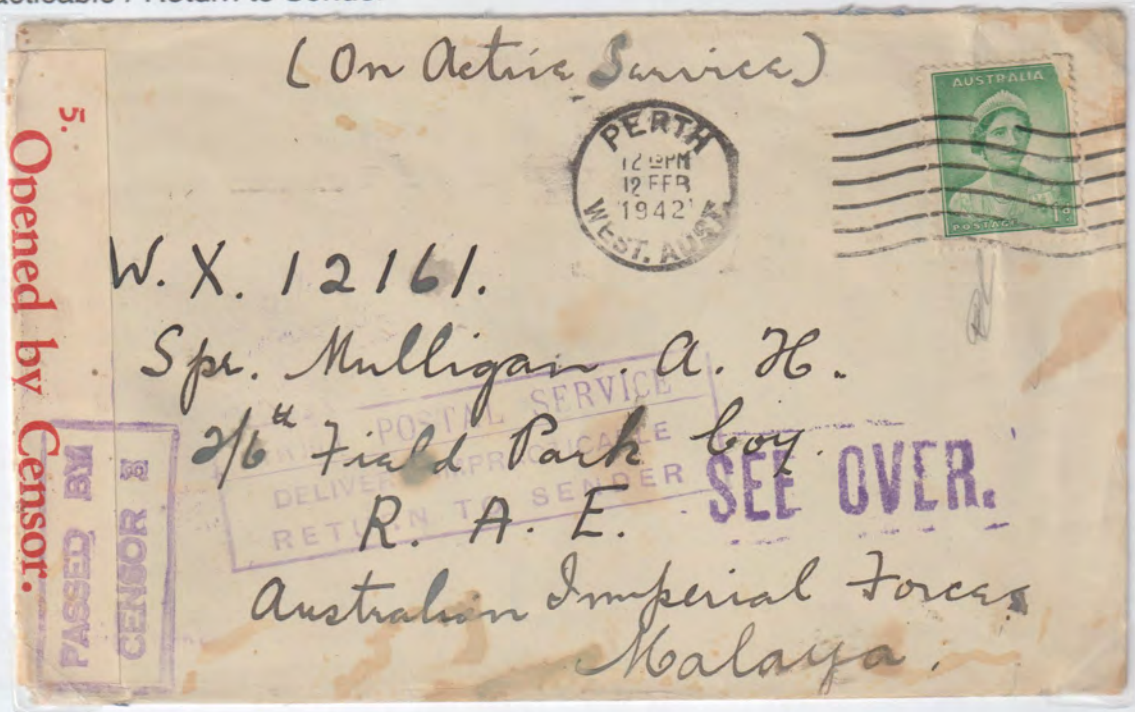 Return to Sender
(On Active Service)
AUSTRALIA
POSTAGE
1D
PERTH
12 PM
12 FEB
1942
WEST. AUST.
5.
Opened by Censor.
W. X. 12161.
Spr. Mulligan. A. H.
2/6th Field Park Coy.
R. A. E.
Australian Imperial Forces
Malaya.
POSTAL SERVICE
DELIVERY IMPRACTICABLE
RETURN TO SENDER
SEE OVER.
PASSED BY
CENSOR